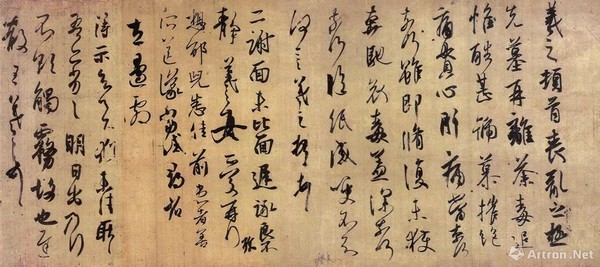 羲之頓首喪亂之極
先墓再離荼毒追
惟酷甚號慕摧絕
痛貫心肝痛當奈何
奈何雖即脩復未獲
奔馳哀毒益深奈何
奈何臨紙感哽不知
何言羲之頓首頓首
二謝面未比面遲詠良
靜羲之女愛再拜
想邰兒悉佳前患者善
所送議當試尋省
左邊劇
得示知足下猶未佳耿耿
吾亦劣劣明日出乃行
不欲觸霧故也遲
散王羲之頓首
Artron.Net